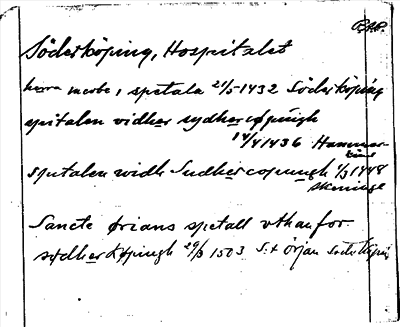 Söderköping, Hospitalet
spetala 21/5-1432 Söderköping
spitalen vidher sydherkøpungh
14/4 1436 Hammar-
spitalen widh Sudhercopungh 1/3 1448
Skeninge
Sancte Ørians spetall vthanfor
sødherkøpingh 29/3 1503 S:t Örjan Söderköping